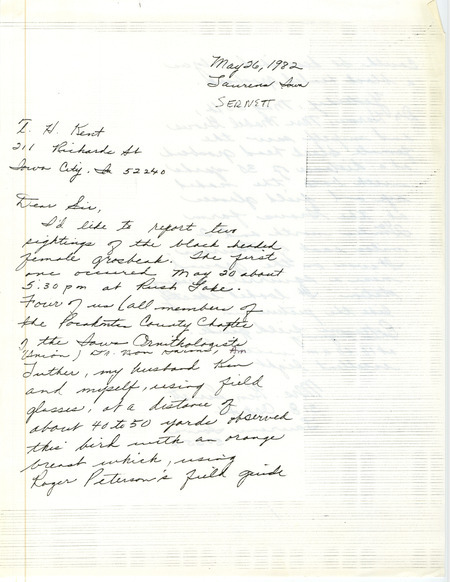 May 26, 1982
Laurens Iowa
SERNETT
T. H. Kent
211 Richards St
Iowa City, Ia 52240
Dear Sir,
I'd like to report two
sightings of the black headed
female grosbeak. The first
one occured May 20 about
5:30 pm at Rush Lake.
Four of us (all members of
the Pocahontas County Chapter
of the Iowa Ornithologists
Union)
Luther, my husband Ken
and myself, using field
glasses, at a distance of
about 40 to 50 yards observed
this bird with an orange
breast which, using
Roger Peterson's field guide